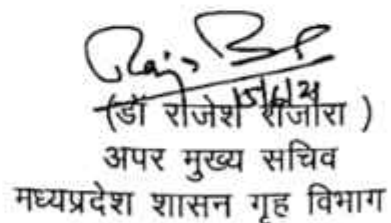 15/6/21
(डॉ राजेश राजौरा )
अपर मुख्य सचिव
मध्यप्रदेश शासन गृह विभाग